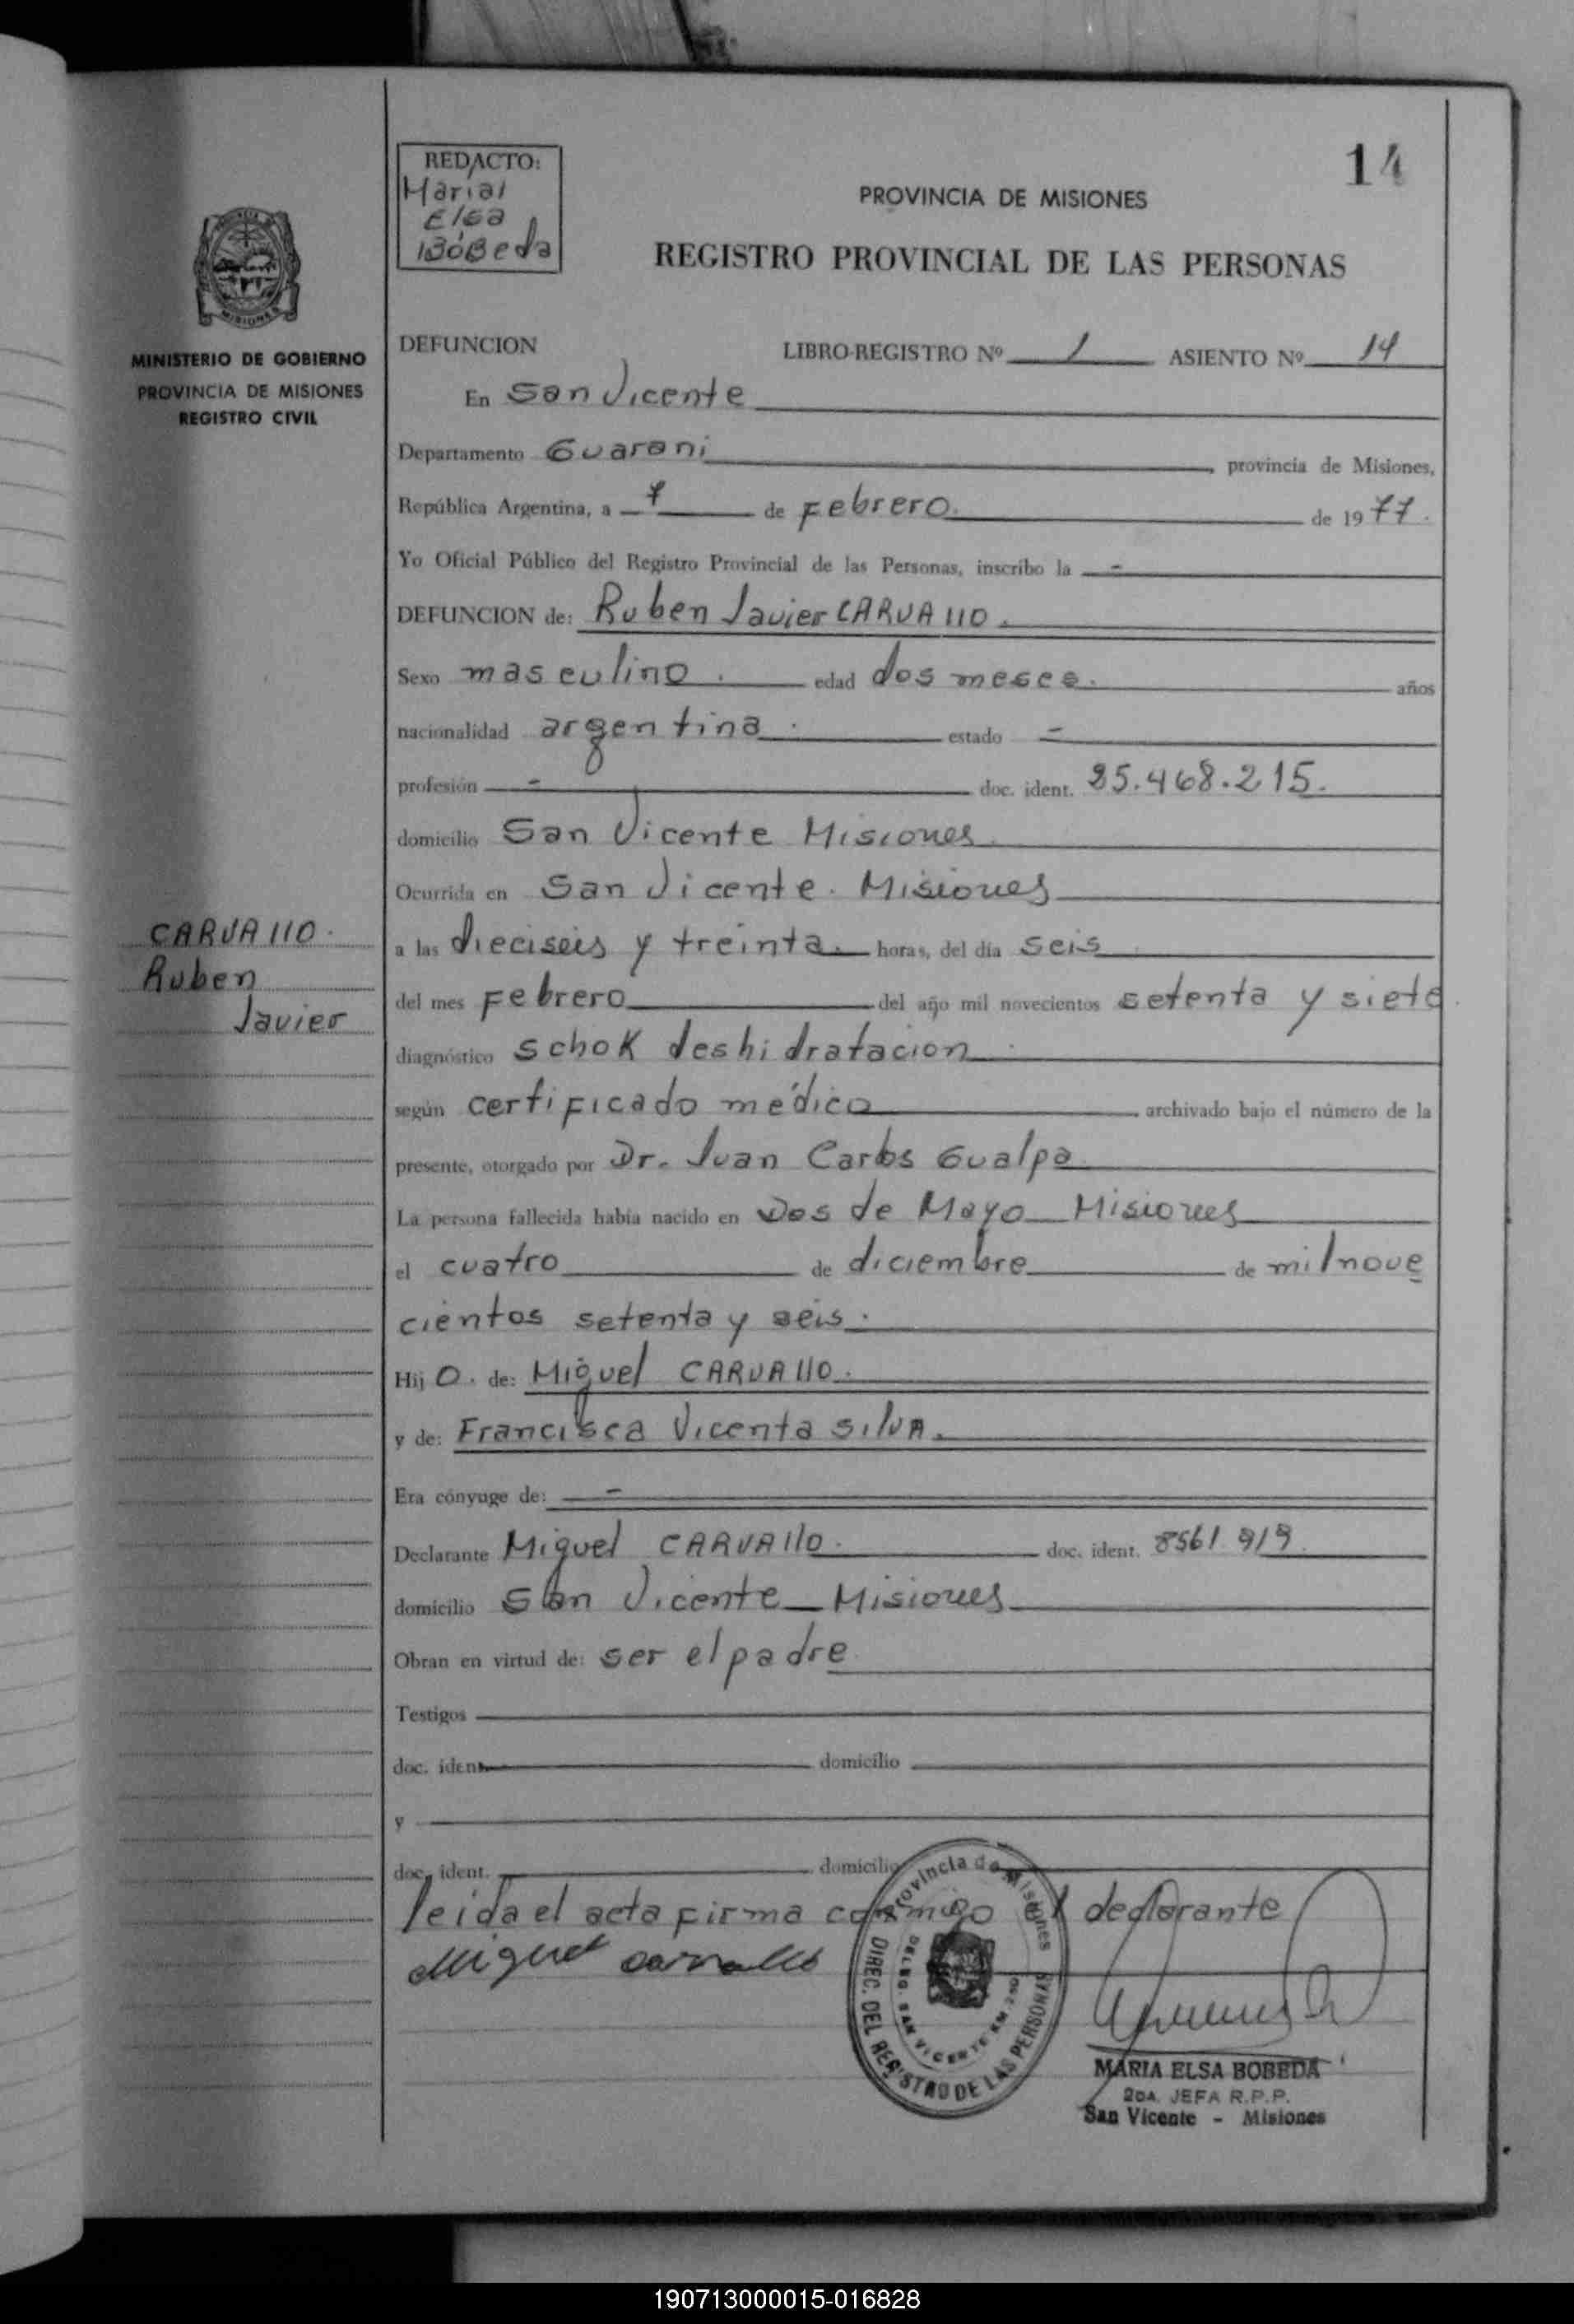 14
REDACTO:
Maria
Elsa
BóBeda
PROVINCIA DE MISIONES
REGISTRO PROVINCIAL DE LAS PERSONAS
MISIONES
MINISTERIO DE GOBIERNO
PROVINCIA DE MISIONES
REGISTRO CIVIL
DEFUNCION LIBRO-REGISTRO Nº 1 ASIENTO Nº 14
En San Vicente
Departamento Guarani, provincia de Misiones,
República Argentina, a 7 de Febrero. de 1977.
Yo Oficial Público del Registro Provincial de las Personas, inscribo la -
DEFUNCION de: Ruben Javier CARVAllO.
Sexo masculino. edad dos meses. años
nacionalidad argentina. estado -
profesión - doc. ident. 25.468.215.
domicilio San Vicente Misiones
Ocurrida en San Vicente. Misiones
CARVAllO.
Ruben
Javier
a las dieciseis y treinta. horas, del día seis
del mes Febrero del año mil novecientos setenta y siete
diagnóstico schok deshidratacion.
según certificado médico archivado bajo el número de la
presente, otorgado por Dr. Juan Carlos Gualpa
La persona fallecida había nacido en Dos de Mayo Misiones
el cuatro de diciembre de milnove
cientos setenta y seis.
Hij o. de: Miguel CARVAllO.
y de: Francisca Vicenta SilVA.
Era cónyuge de: -
Declarante Miguel CARVAllO. doc. ident. 8561 919.
domicilio San Vicente Misiones
Obran en virtud de: ser el padre.
Testigos
doc. ident. domicilio
y
doc. ident. domicilio
leida el acta firma conmigo el declarante
Miguel Carvallo
Provincia de Misiones
DIREC. DEL REGISTRO DE LAS PERSONAS
DELEG. SAN VICENTE KM. 250
MARIA ELSA BOBEDA
2DA. JEFA R.P.P.
San Vicente - Misiones
190713000015-016828